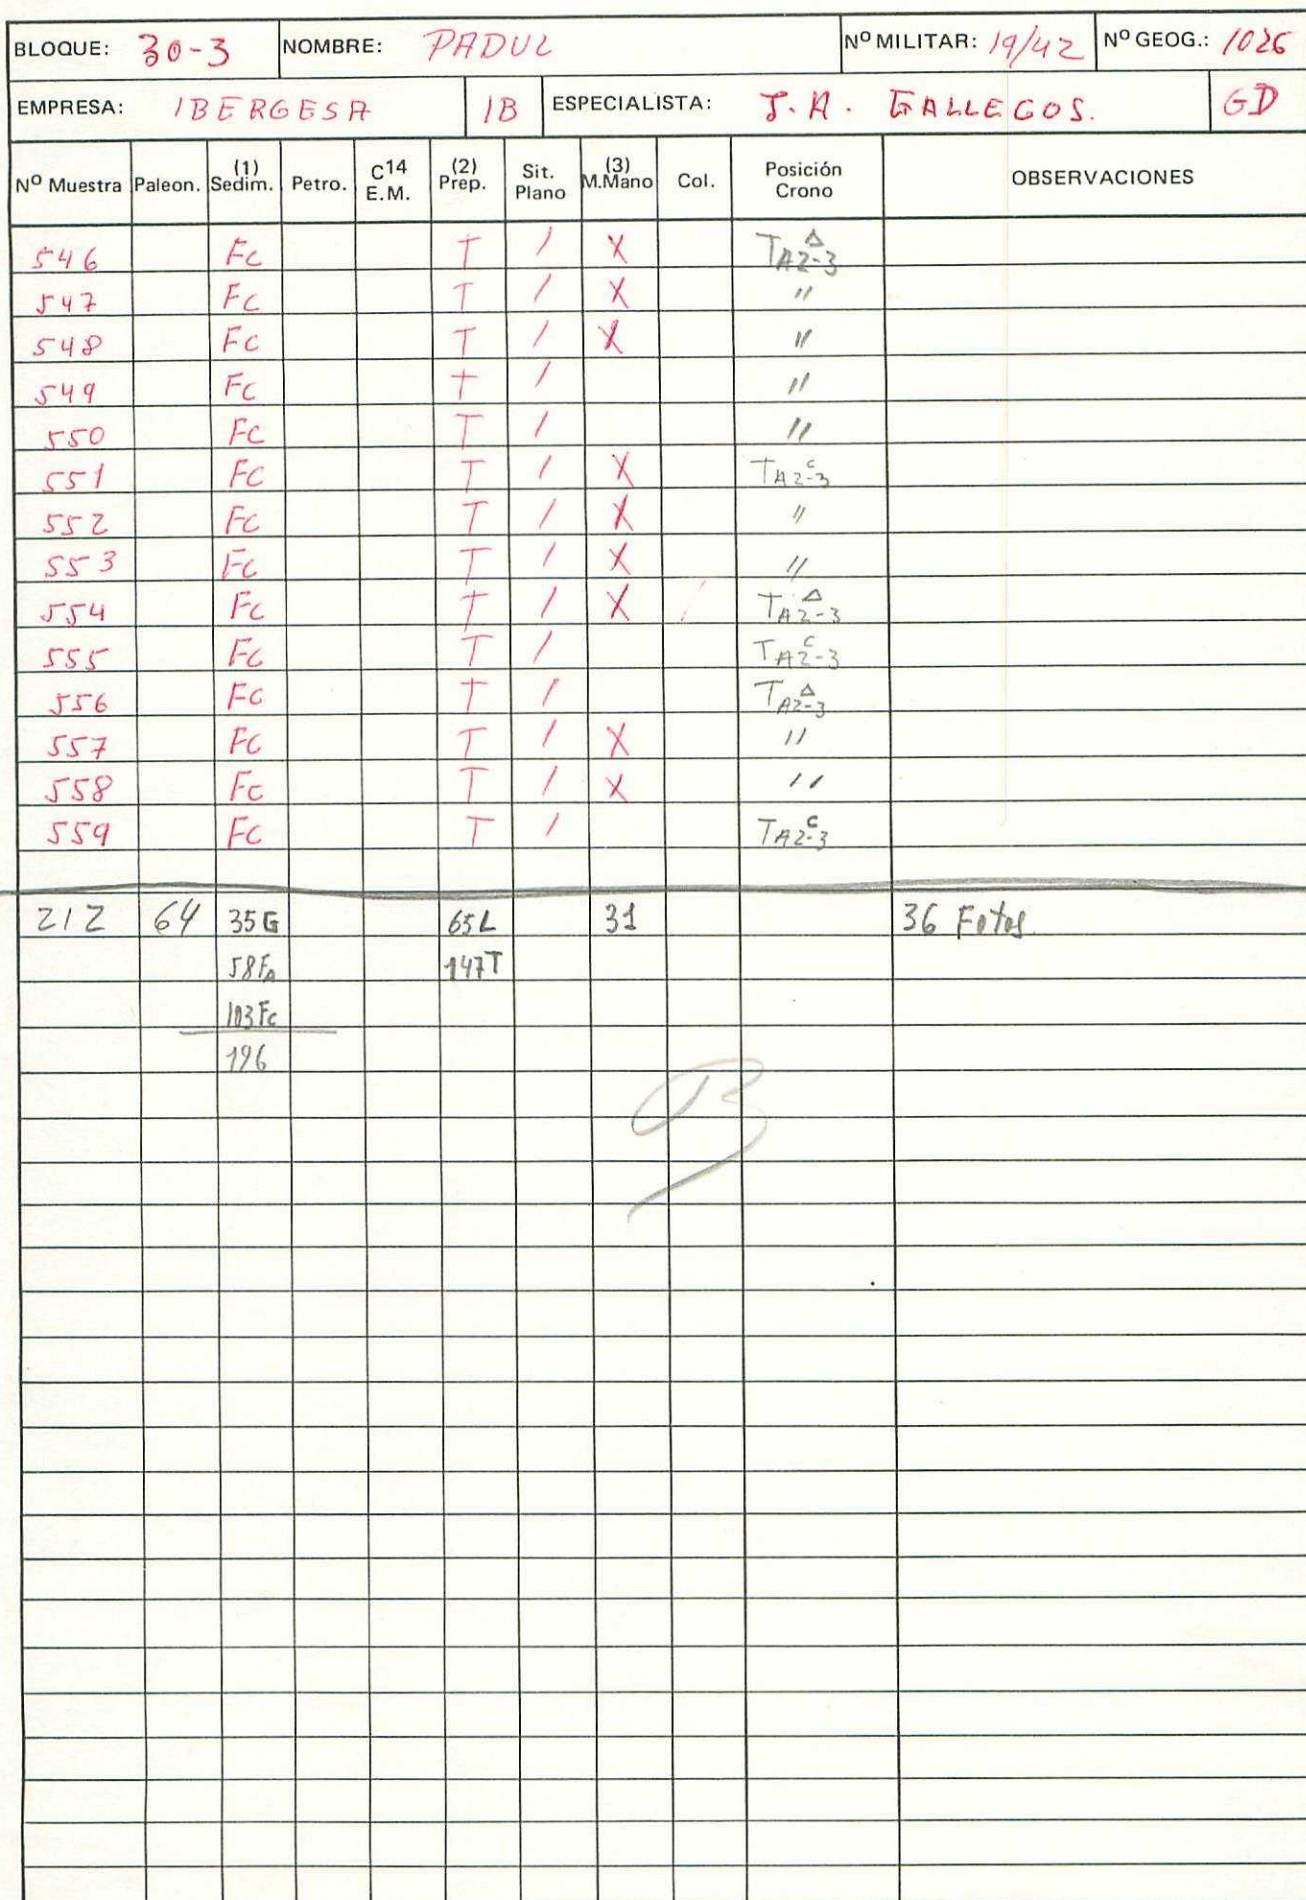 BLOQUE: 30-3 NOMBRE: PADUL Nº MILITAR: 19/42 Nº GEOG.: 1026
EMPRESA: IBERGESA IB ESPECIALISTA: J.A. GALLEGOS. GD
Nº Muestra Paleon. (1) Sedim. Petro. C14 E.M. (2) Prep. Sit. Plano (3) M.Mano Col. Posición Crono OBSERVACIONES
546 Fc T / X TA2-3 Δ
547 Fc T / X "
548 Fc T / X "
549 Fc T / "
550 Fc T / "
551 Fc T / X TA2-3 c
552 Fc T / X "
553 Fc T / X "
554 Fc T / X / TA2-3 Δ
555 Fc T / TA2-3 c
556 Fc T / TA2-3 Δ
557 Fc T / X "
558 Fc T / X "
559 Fc T / TA2-3 c
212 64 35G 65L 31 36 Fotos
58FA 147T
103Fc
196